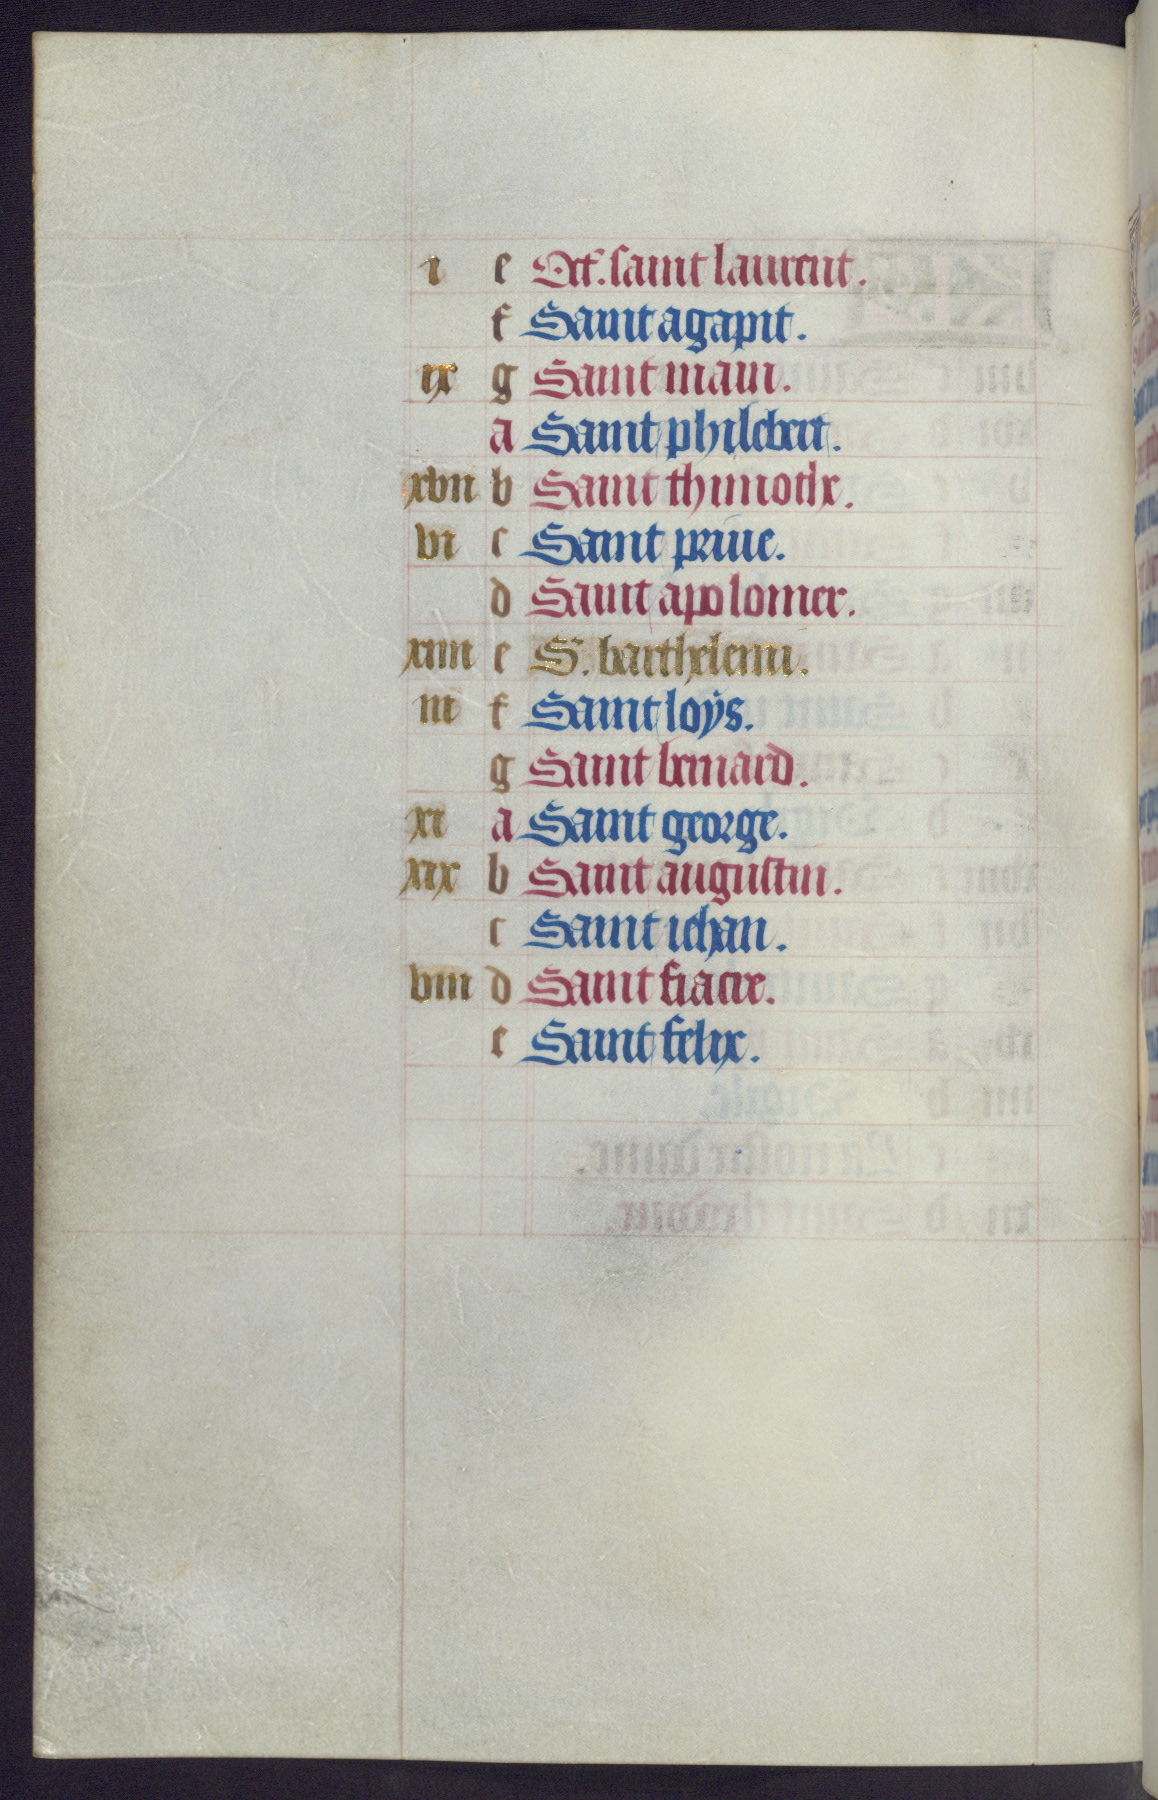 i e Oct. saint laurent.
f Saint agapit.
ix g Saint main.
a Saint philebert.
xvii b Saint thimothe.
vi c Saint priue.
d Saint apolomer.
xiiii e S. barthelemi.
iii f Saint loys.
g Saint bernard.
xi a Saint george.
xix b Saint augustin.
c Saint iehan.
viii d Saint fiacre.
e Saint felix.